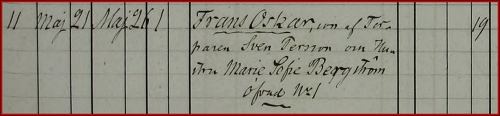 11 Maj 21 Maj 26 1 Frans Oskar, son af Tor- 19
paren Sven Persson och Hu-
stru Marie Sofie Bergström
Öfvad No 1